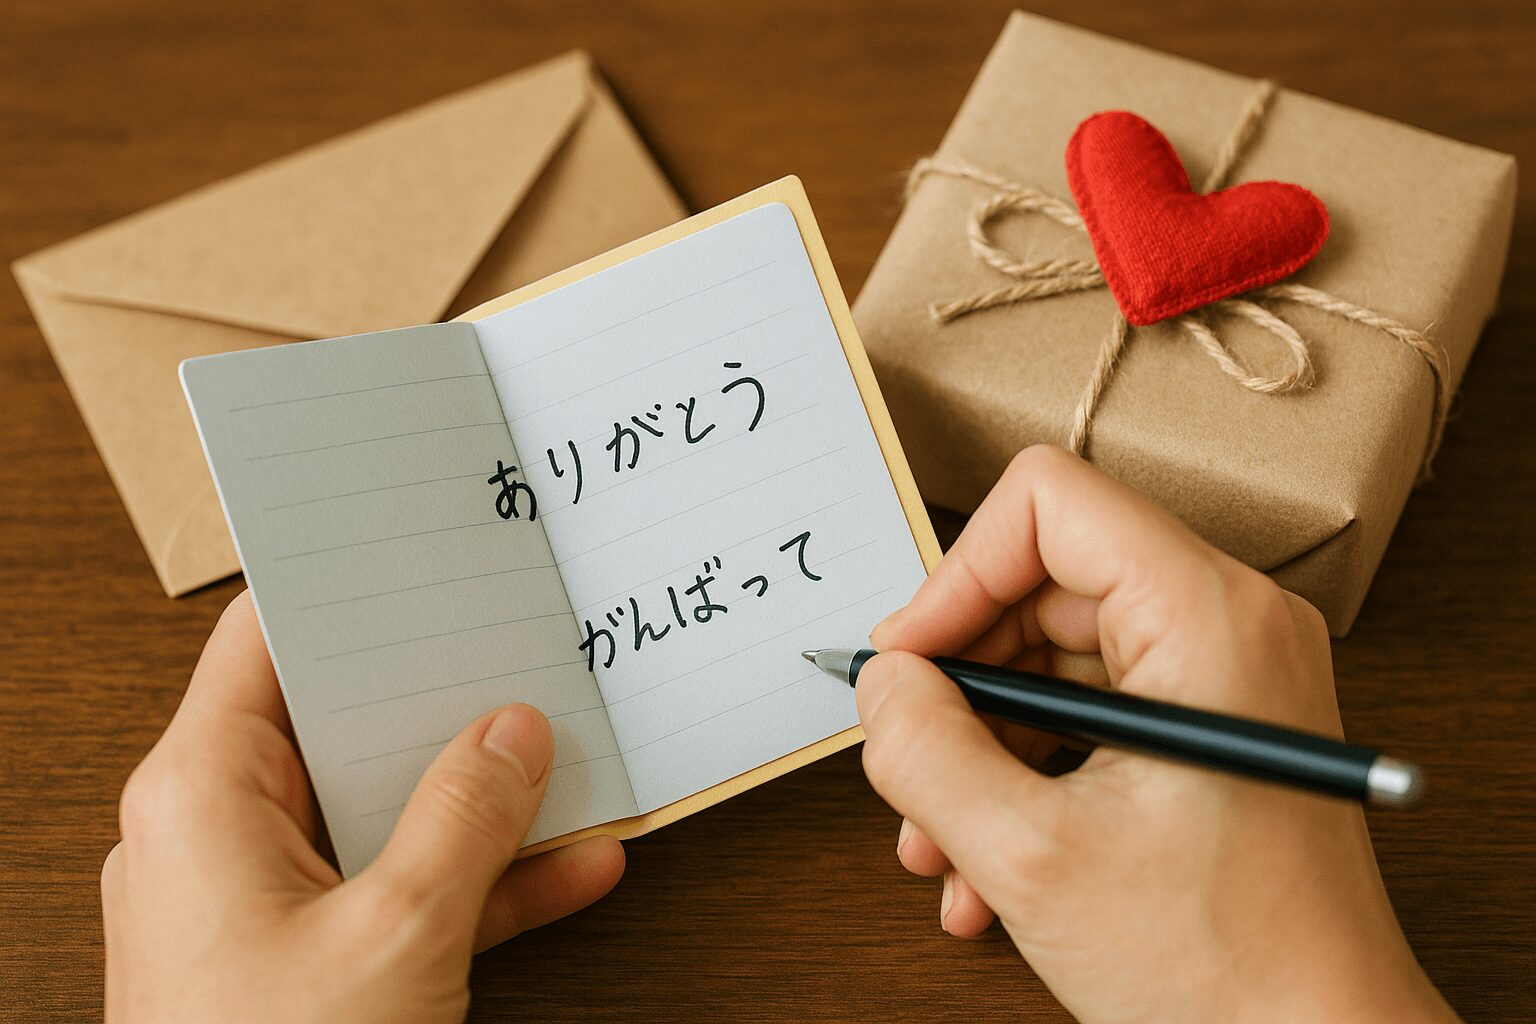 ありがとう
がんばって